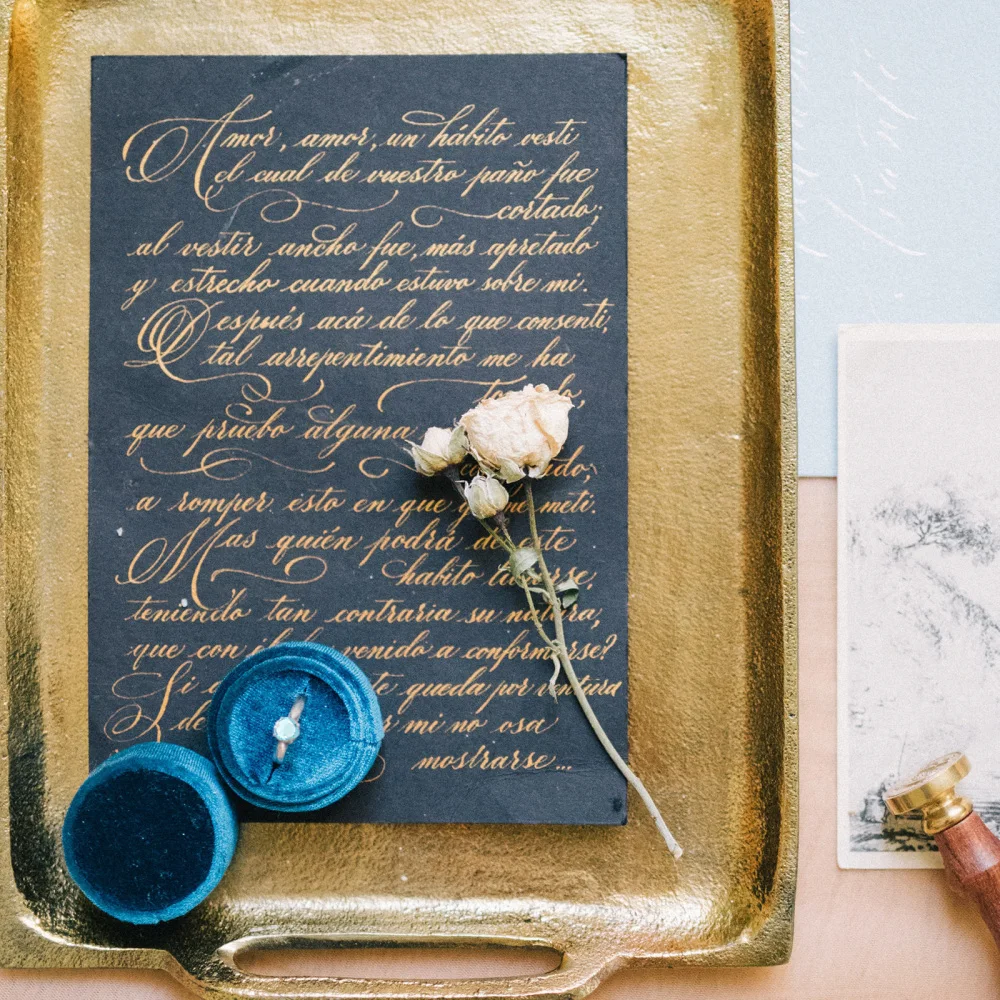 Amor, amor, un hábito vestí
el cual de vuestro paño fue
cortado;
al vestir ancho fue, más apretado
y estrecho cuando estuvo sobre mi.
Después acá de lo que consentí,
tal arrepentimiento me ha
que pruebo alguna
a romper esto en que me metí.
Mas quién podrá de este
habito
teniendo tan contraria su
que con venido a
Si queda por ventura
de mi no osa
mostrarse...